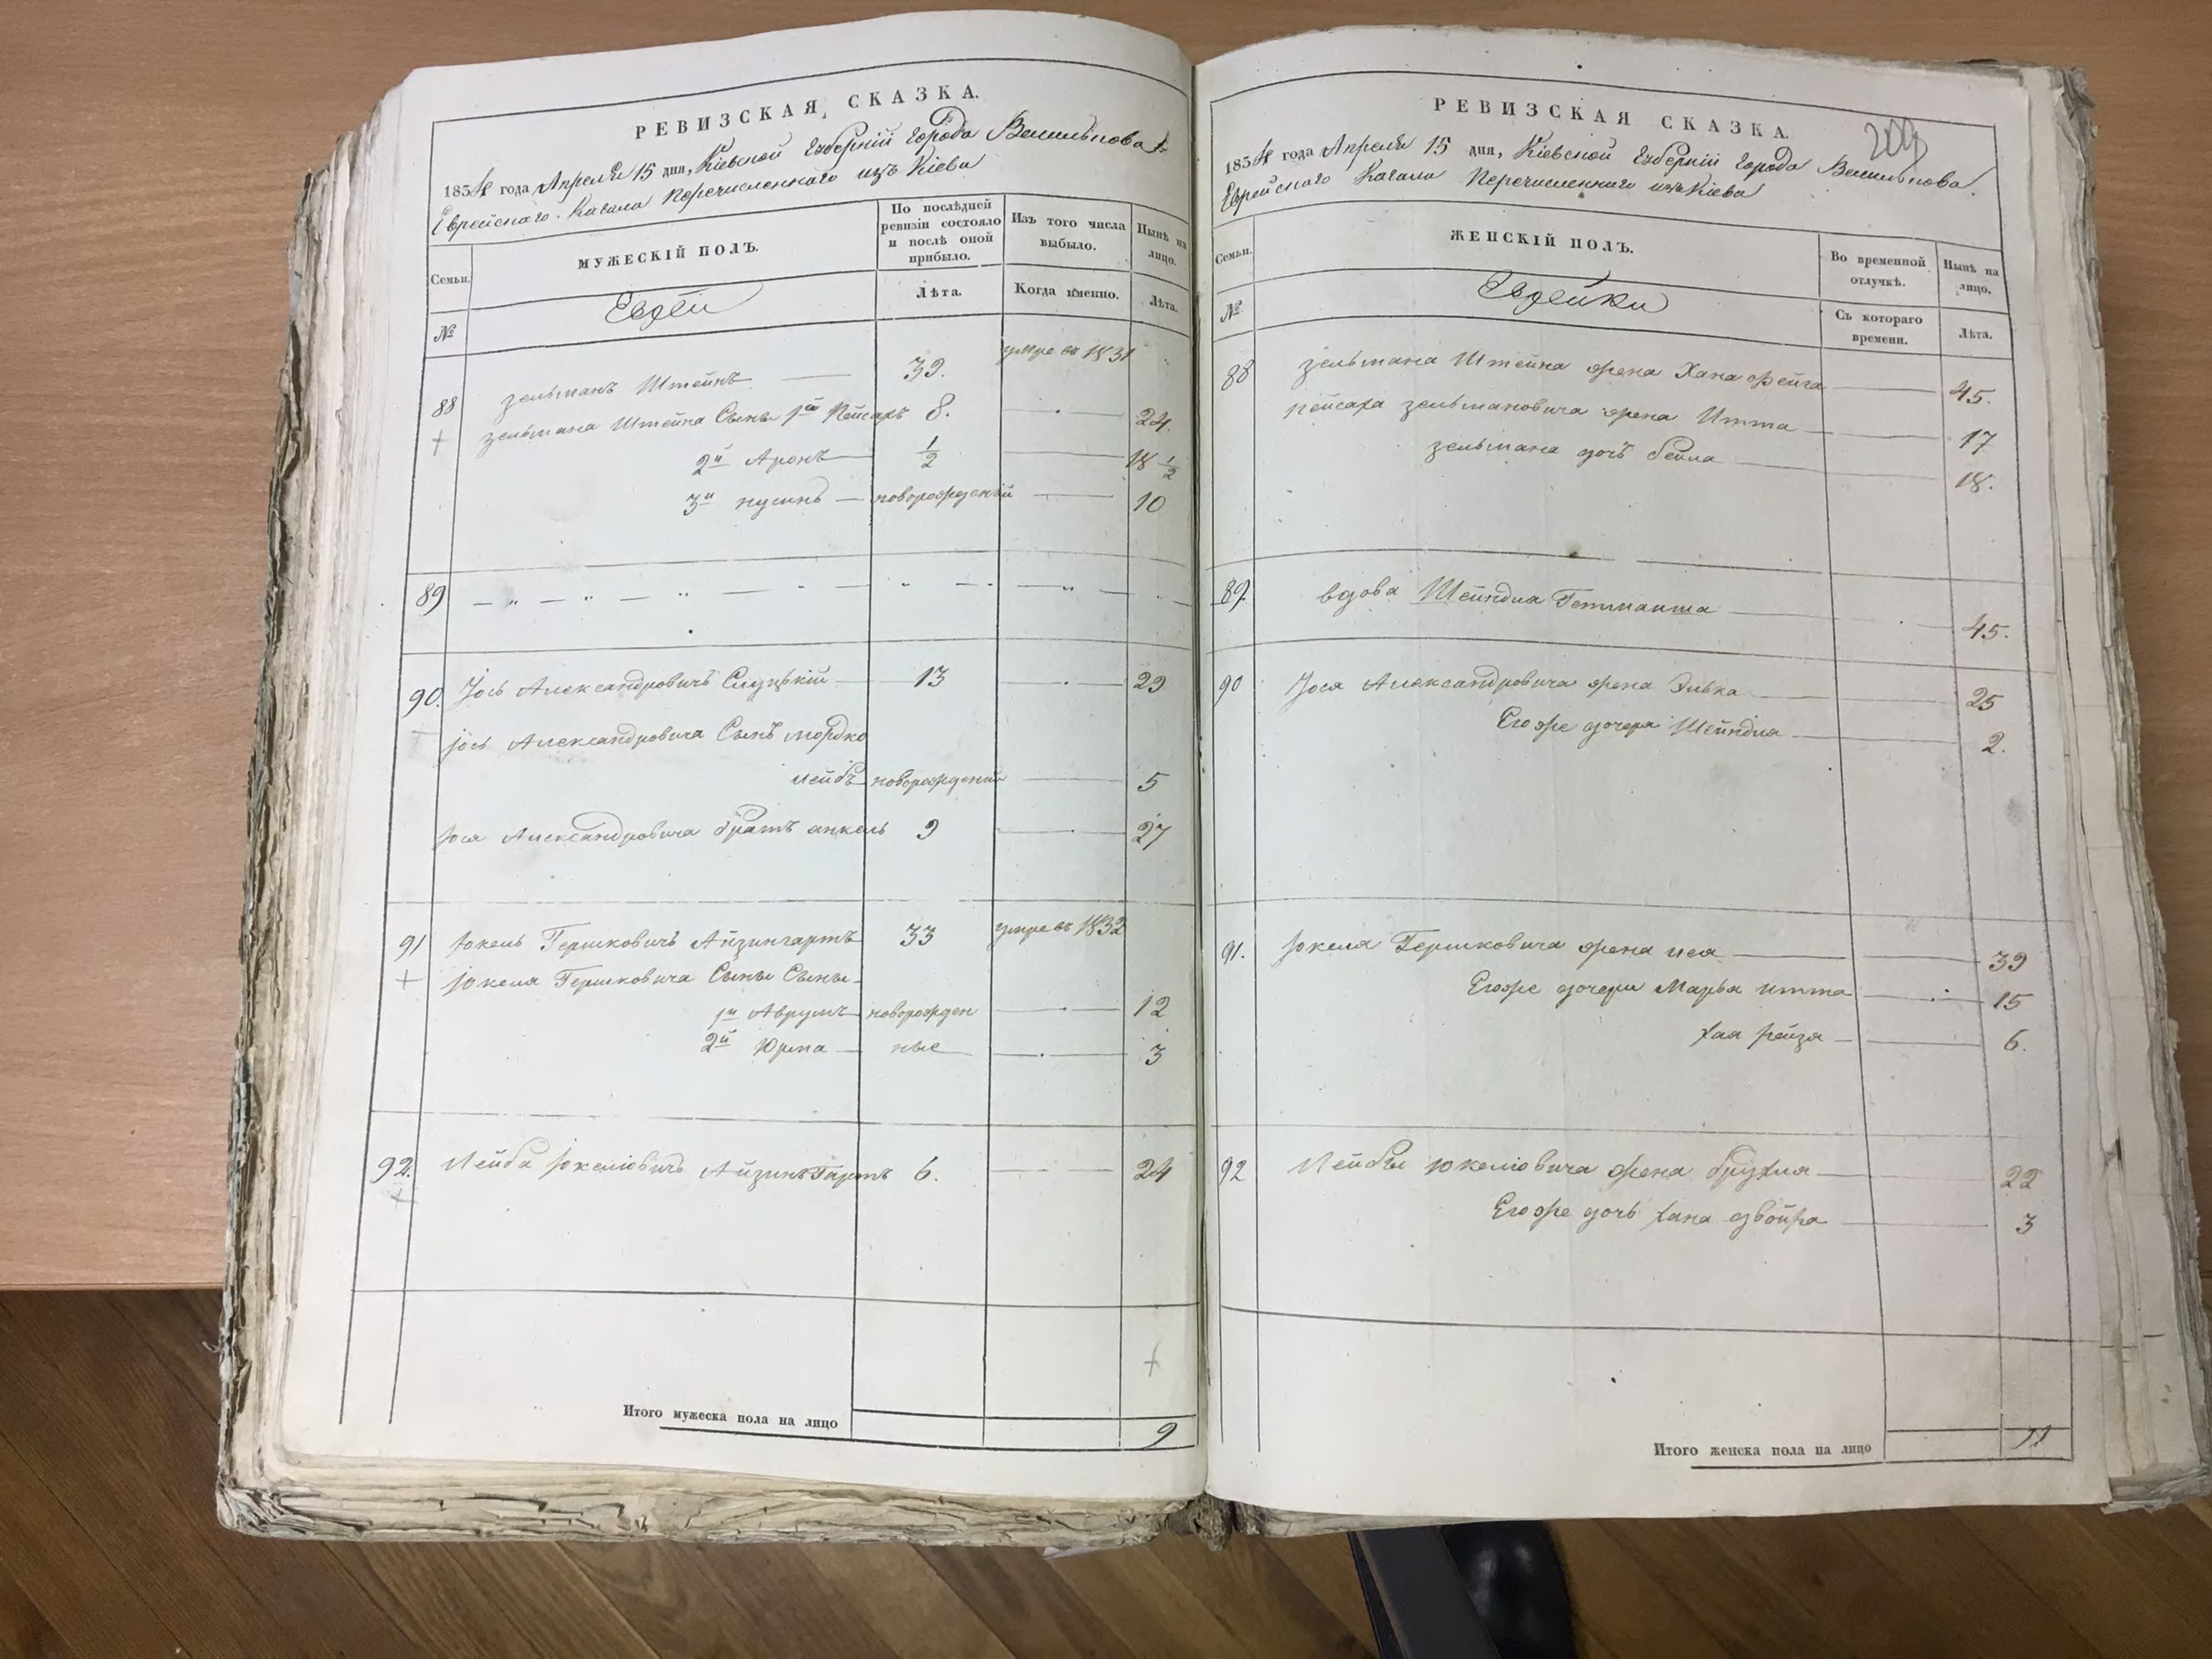 РЕВИЗСКАЯ СКАЗКА.
1834 года Апреля 15 дня, Кіевской Губерніи Города Василькова
Еврейского Кагала Перечисленнаго изъ Кіева
Семьи.
МУЖЕСКІЙ ПОЛЪ.
По послѣдней ревизіи состояло и послѣ оной прибыло.
Изъ того числа выбыло.
Нынѣ на лицо.
№
Евреи
Лѣта.
Когда именно.
Лѣта.
88 Зельманъ Штейнъ 39. умре въ 1831
Зельмана Штейна Сыны 1й Пейсахъ 8. 24.
2й Аронъ 1/2 18 1/2
3й новорожденій 10
89
90. Іось Александровичъ Слуцкій 13 29
Іося Александровича Сынъ Мордко
лейбъ новорожденій 5
Іося Александровича братъ 9 27
91 Іокель Гершковичъ Айзингартъ 33 умре въ 1832
Іокеля Гершковича Сыны Сыны
1й Аврумъ новорожден 12
2й Юрма ные 3
92. Лейба Іокеліовичъ Айзинъгартъ 6. 24
Итого мужеска пола на лицо 9
РЕВИЗСКАЯ СКАЗКА.
1834 года Апреля 15 дня, Кіевской Губерніи Города Василькова.
Еврейского Кагала Перечисленнаго изъ Кіева
Семьи.
ЖЕНСКІЙ ПОЛЪ.
Во временной отлучкѣ.
Нынѣ на лицо.
№
Еврейки
Съ котораго времени.
Лѣта.
88 Зельмана Штейна жена Хана фейга 45.
Пейсаха Зельмановича жена Итта 17
Зельмана дочь бейла 18.
89. вдова Шейндля Гетманша 45.
90 Іося Александровича жена Элька 25
Егоже дочери Шейндля 2.
91. Іокеля Гершковича жена лея 39
Егоже дочери Марья итта 15
хая рейзя 6.
92 Лейбы Іокеліовича жена брухля 22
Егоже дочь хана двойра 3
Итого женска пола на лицо 11